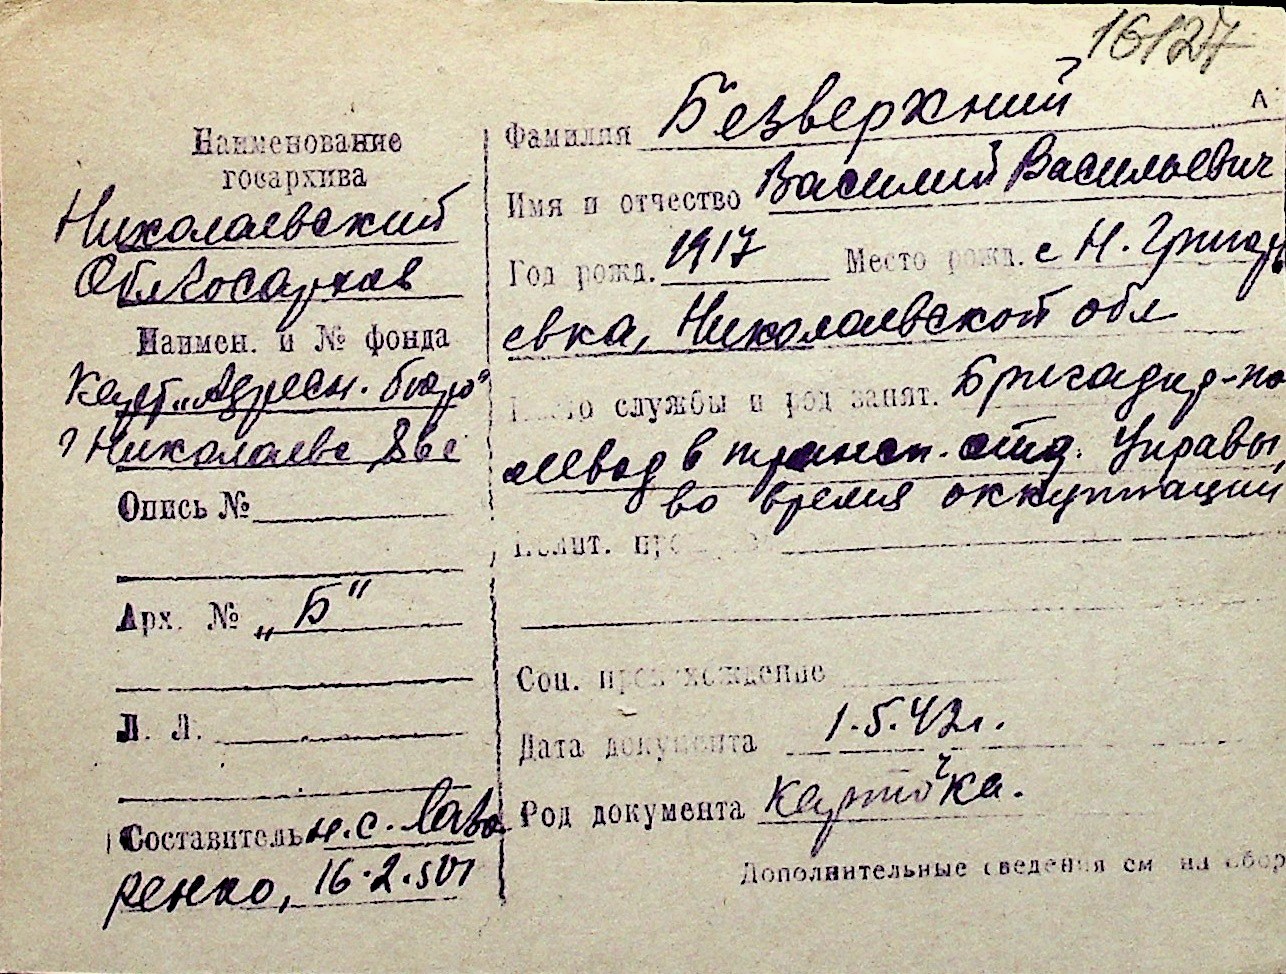 16127
А
Наименование
госархива
Николаевский
Облгосархив
Наимен. и № фонда
Карт „Адресн. бюро"
г Николаева
Опись №
Арх. № „Б"
Л. Л.
Составитель н.с. Лаво
ренко, 16.2.50г
Фамилия Безверхний
Имя и отчество Василий Васильевич
Год рожд. 1917 Место рожд. с Н. Григорь
евка, Николаевской обл
Место службы и род занят. Бригадир-по
в трансп. отд. Управы,
во время оккупации
Полит.
Соц. происхождение
Дата документа 1.5.42г.
Род документа Карточка.
Дополнительные сведения см на обор